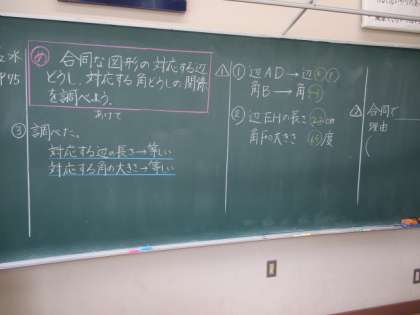 水
P45
め 合同な図形の対応する辺
どうし、対応する角どうしの関係
を調べよう。
あけて
③ 調べた。
対応する辺の長さ→等しい
対応する角の大きさ→等しい
① ① 辺AD → 辺
角B → 角
② 辺EHの長さ 2.2cm
角Fの大きさ 65度
② 合同で
理由
(